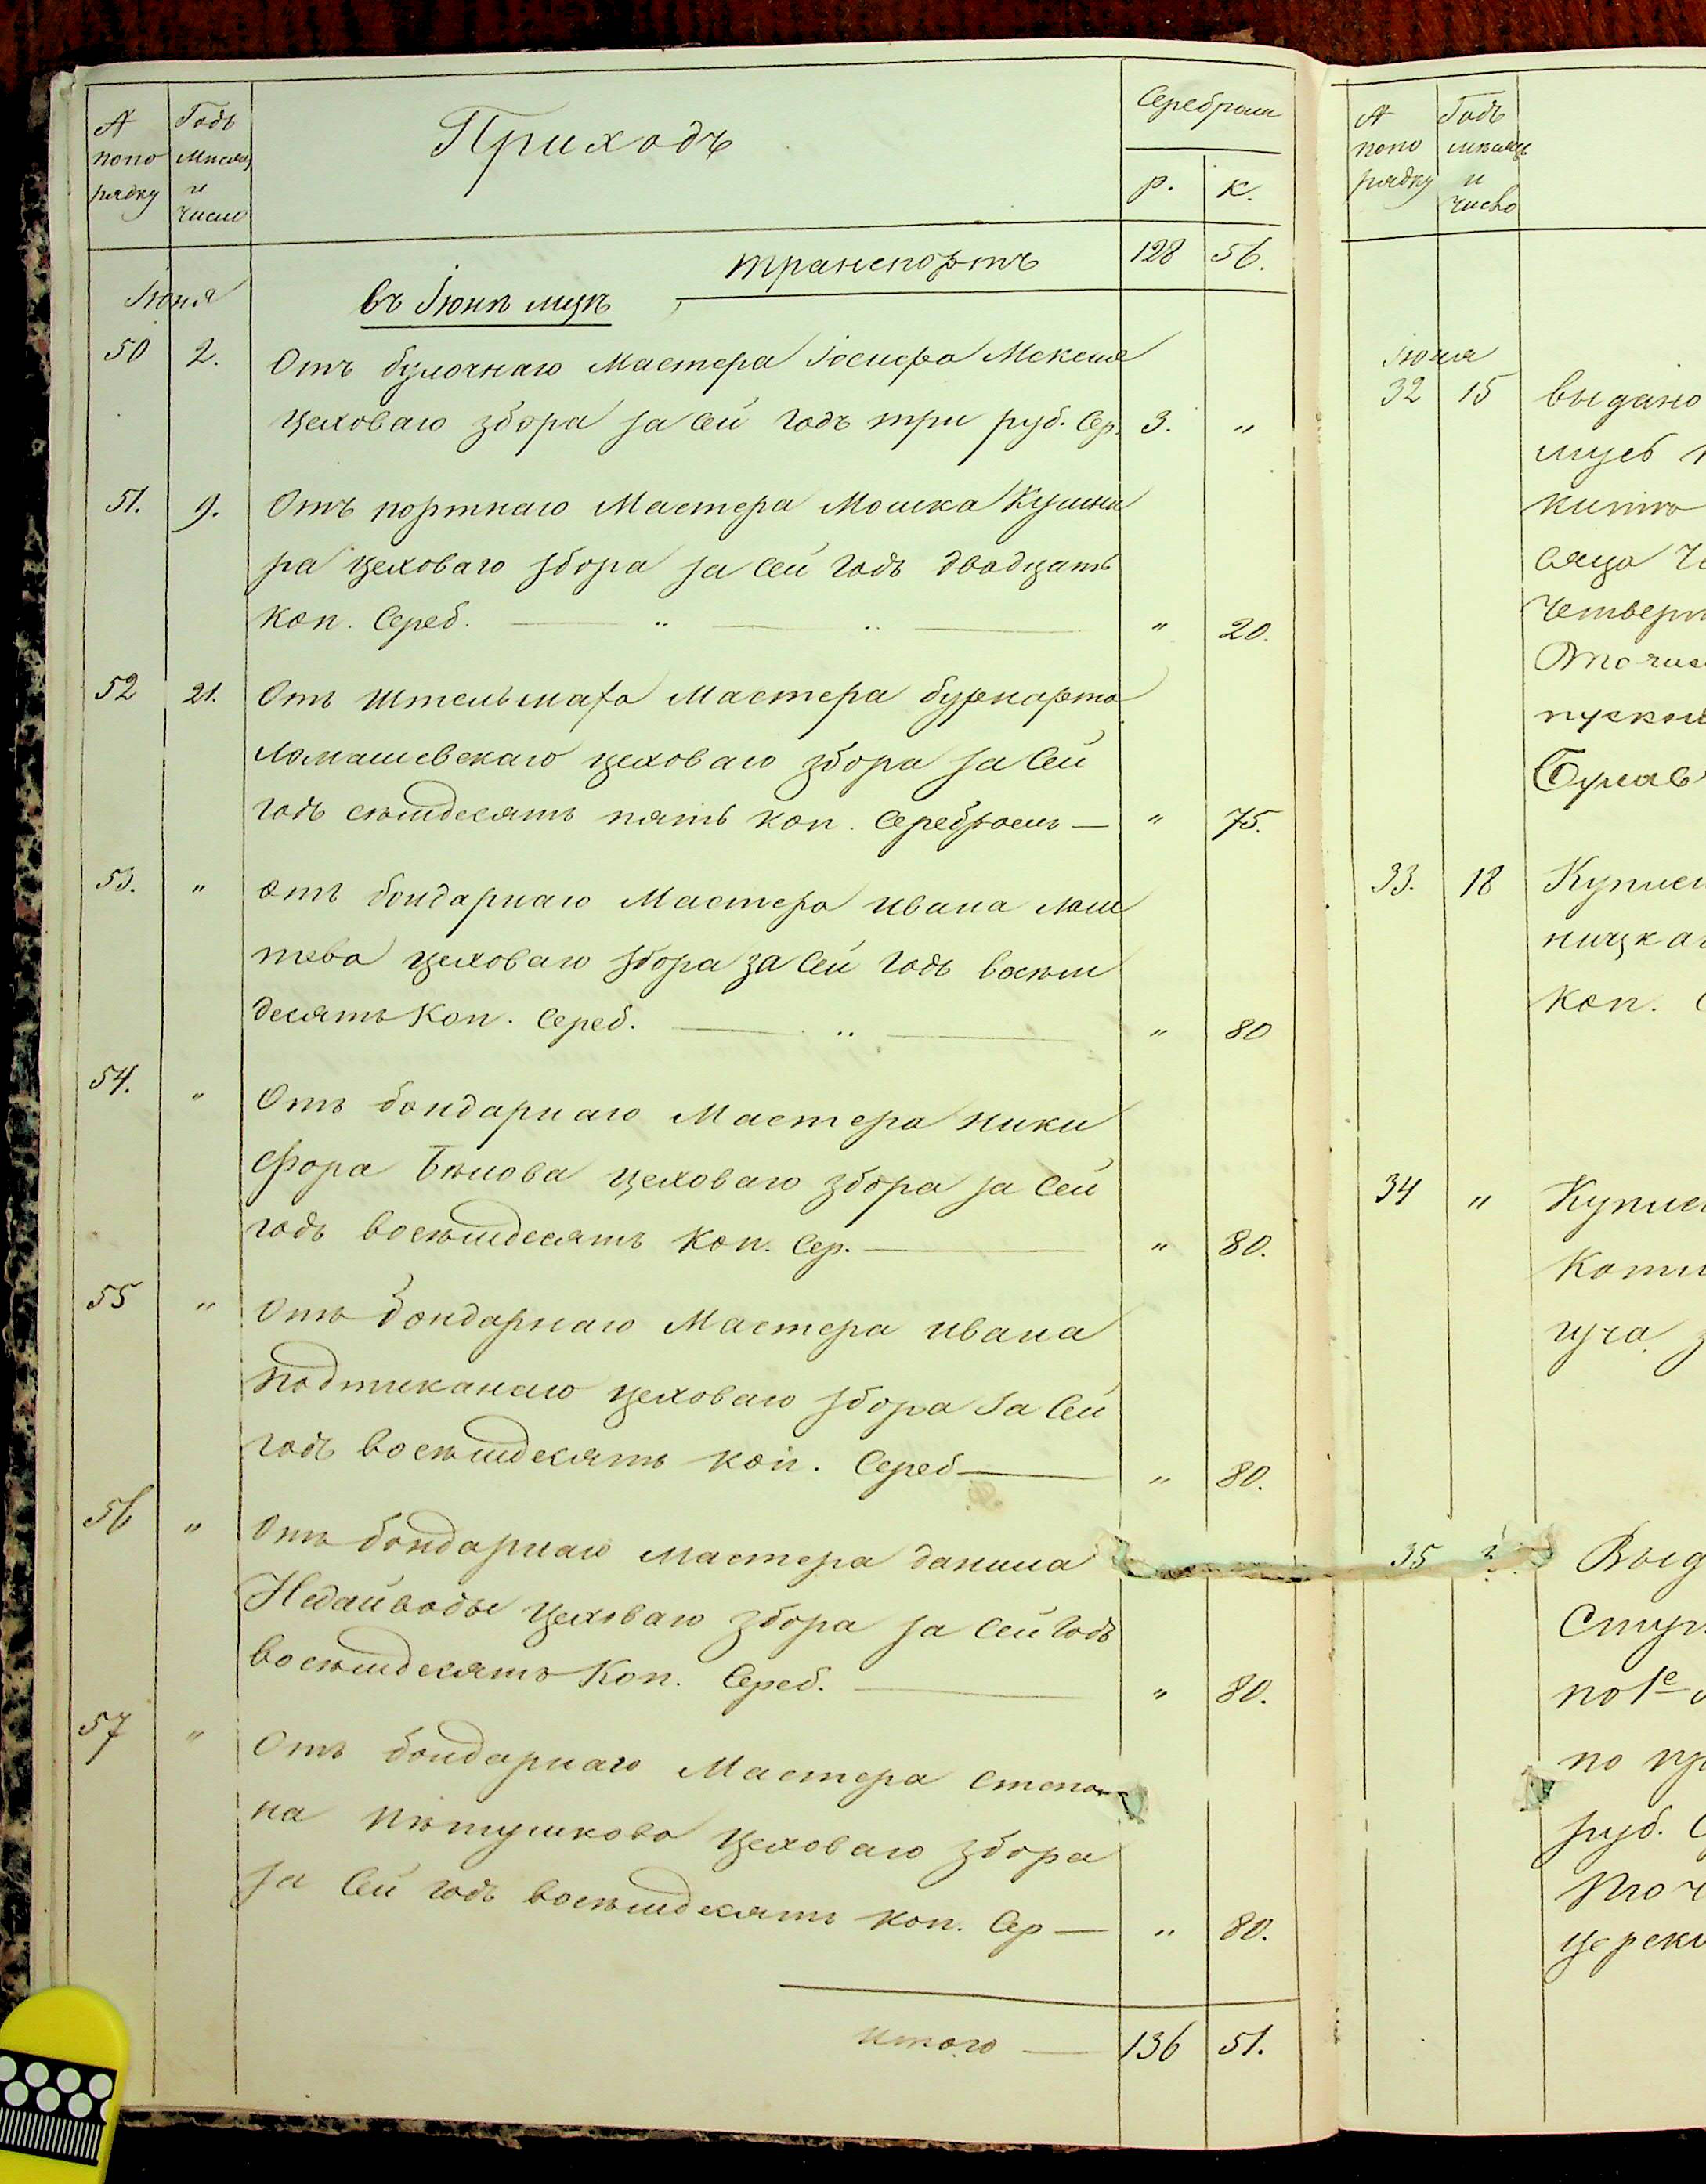 № Годъ Приходъ Серебромъ
попо Мѣсяцъ
рядку и р. к.
число
транспортъ 128 56.
Іюня въ Іюнѣ мцѣ
50 2. Отъ булочнаго Мастера Іосифа Мексша
цеховаго збора за Сей годъ три руб. Сер. 3. "
51. 9. Отъ портнаго Мастера Мошка Кушни
ра цеховаго збора за Сей годъ двадцать
коп. Сереб. " 20.
52 21. Отъ Штельмаха Мастера бурхарта
Ломашевскаго цеховаго збора за Сей
годъ семдесятъ пять коп. Серебромъ — " 75.
53. " Отъ бондарнаго Мастера ивана
цеховаго збора за Сей годъ восем
десятъ Коп. Сереб. " 80
54. " Отъ бондарнаго Мастера ники
фора Бѣлова цеховаго збора за Сей
годъ восемдесятъ Коп. Сер. — " 80.
55 " Отъ бондарнаго Мастера ивана
цеховаго збора За Сей
годъ восемдесятъ коп. Сереб — " 80.
56 " Отъ бондарнаго мастера данила
Недайводы цеховаго збора за Сей Годъ
восемдесятъ Коп. Сереб. — " 80.
57 " Отъ бондарнаго Мастера степа
на Пѣтушкова цеховаго збора
за Сей годъ восемдесятъ коп. Сер — " 80.
итого — 136 51.
№ Годъ
попо мѣсяцъ
рядку и
число
Іюня
32 15 выдано
сяца
четверт
33. 18 Куплен
ницкаг
коп.
34 " Куплен
35 Выд
Ступ
по 1е
по пр
руб.